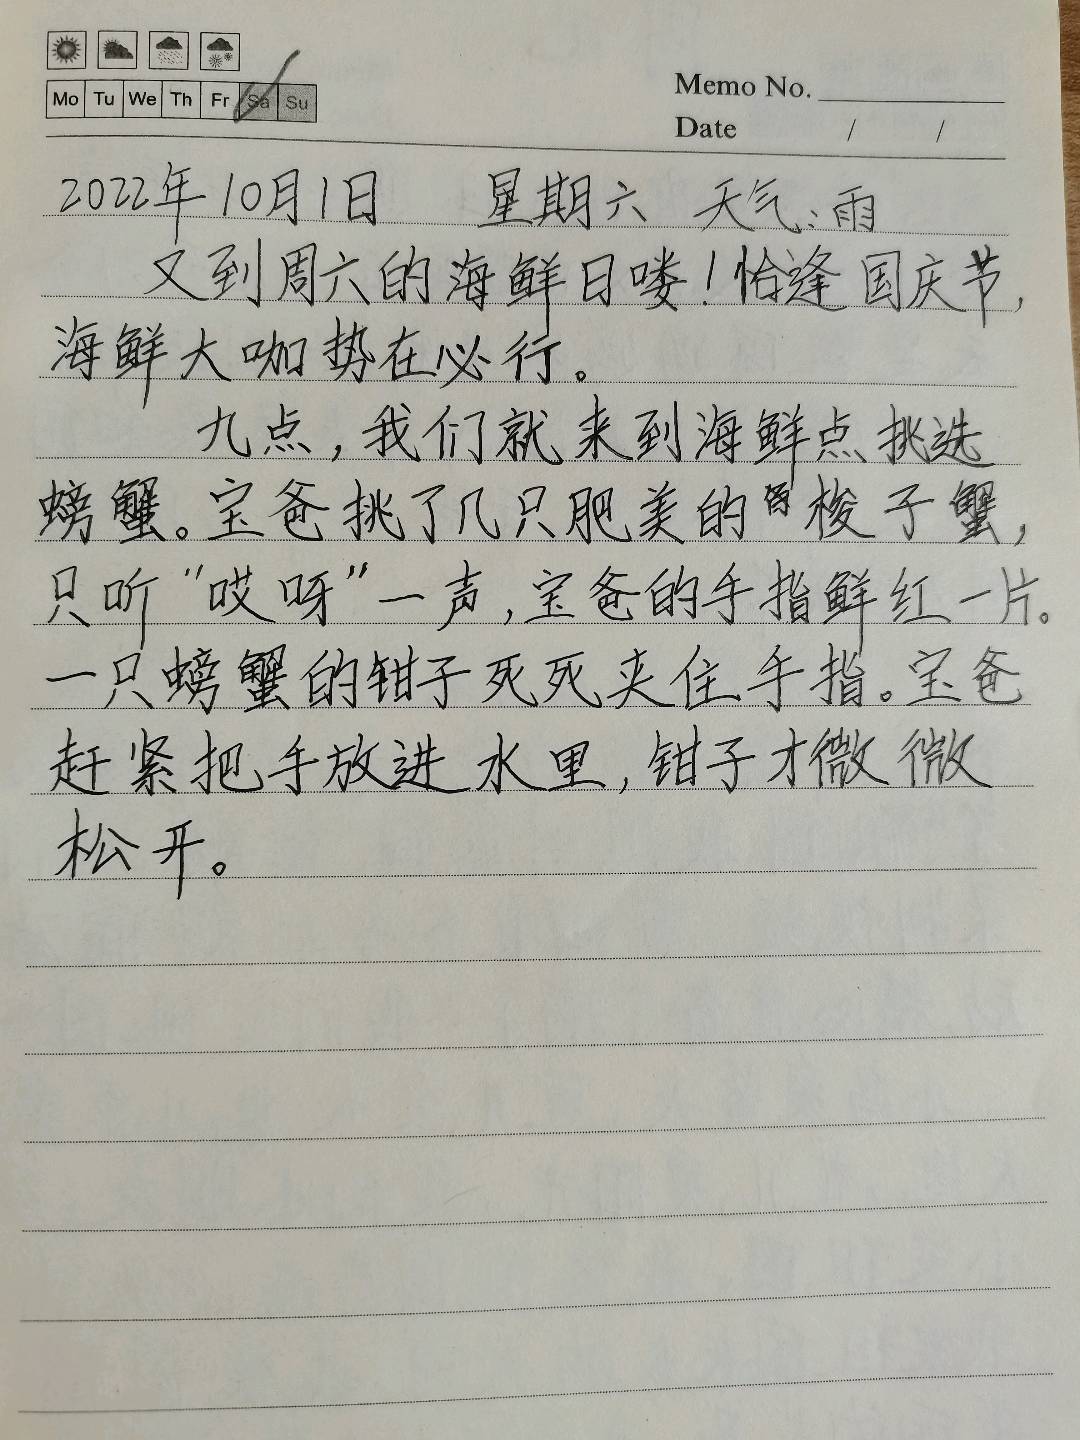 Mo Tu We Th Fr Sa Su
Memo No.
Date / /
2022年10月1日 星期六 天气:雨
又到周六的海鲜日喽!恰逢国庆节,
海鲜大咖势在必行。
九点,我们就来到海鲜点挑选
螃蟹。宝爸挑了几只肥美的梭子蟹,
只听“哎呀”一声,宝爸的手指鲜红一片。
一只螃蟹的钳子死死夹住手指。宝爸
赶紧把手放进水里,钳子才微微
松开。